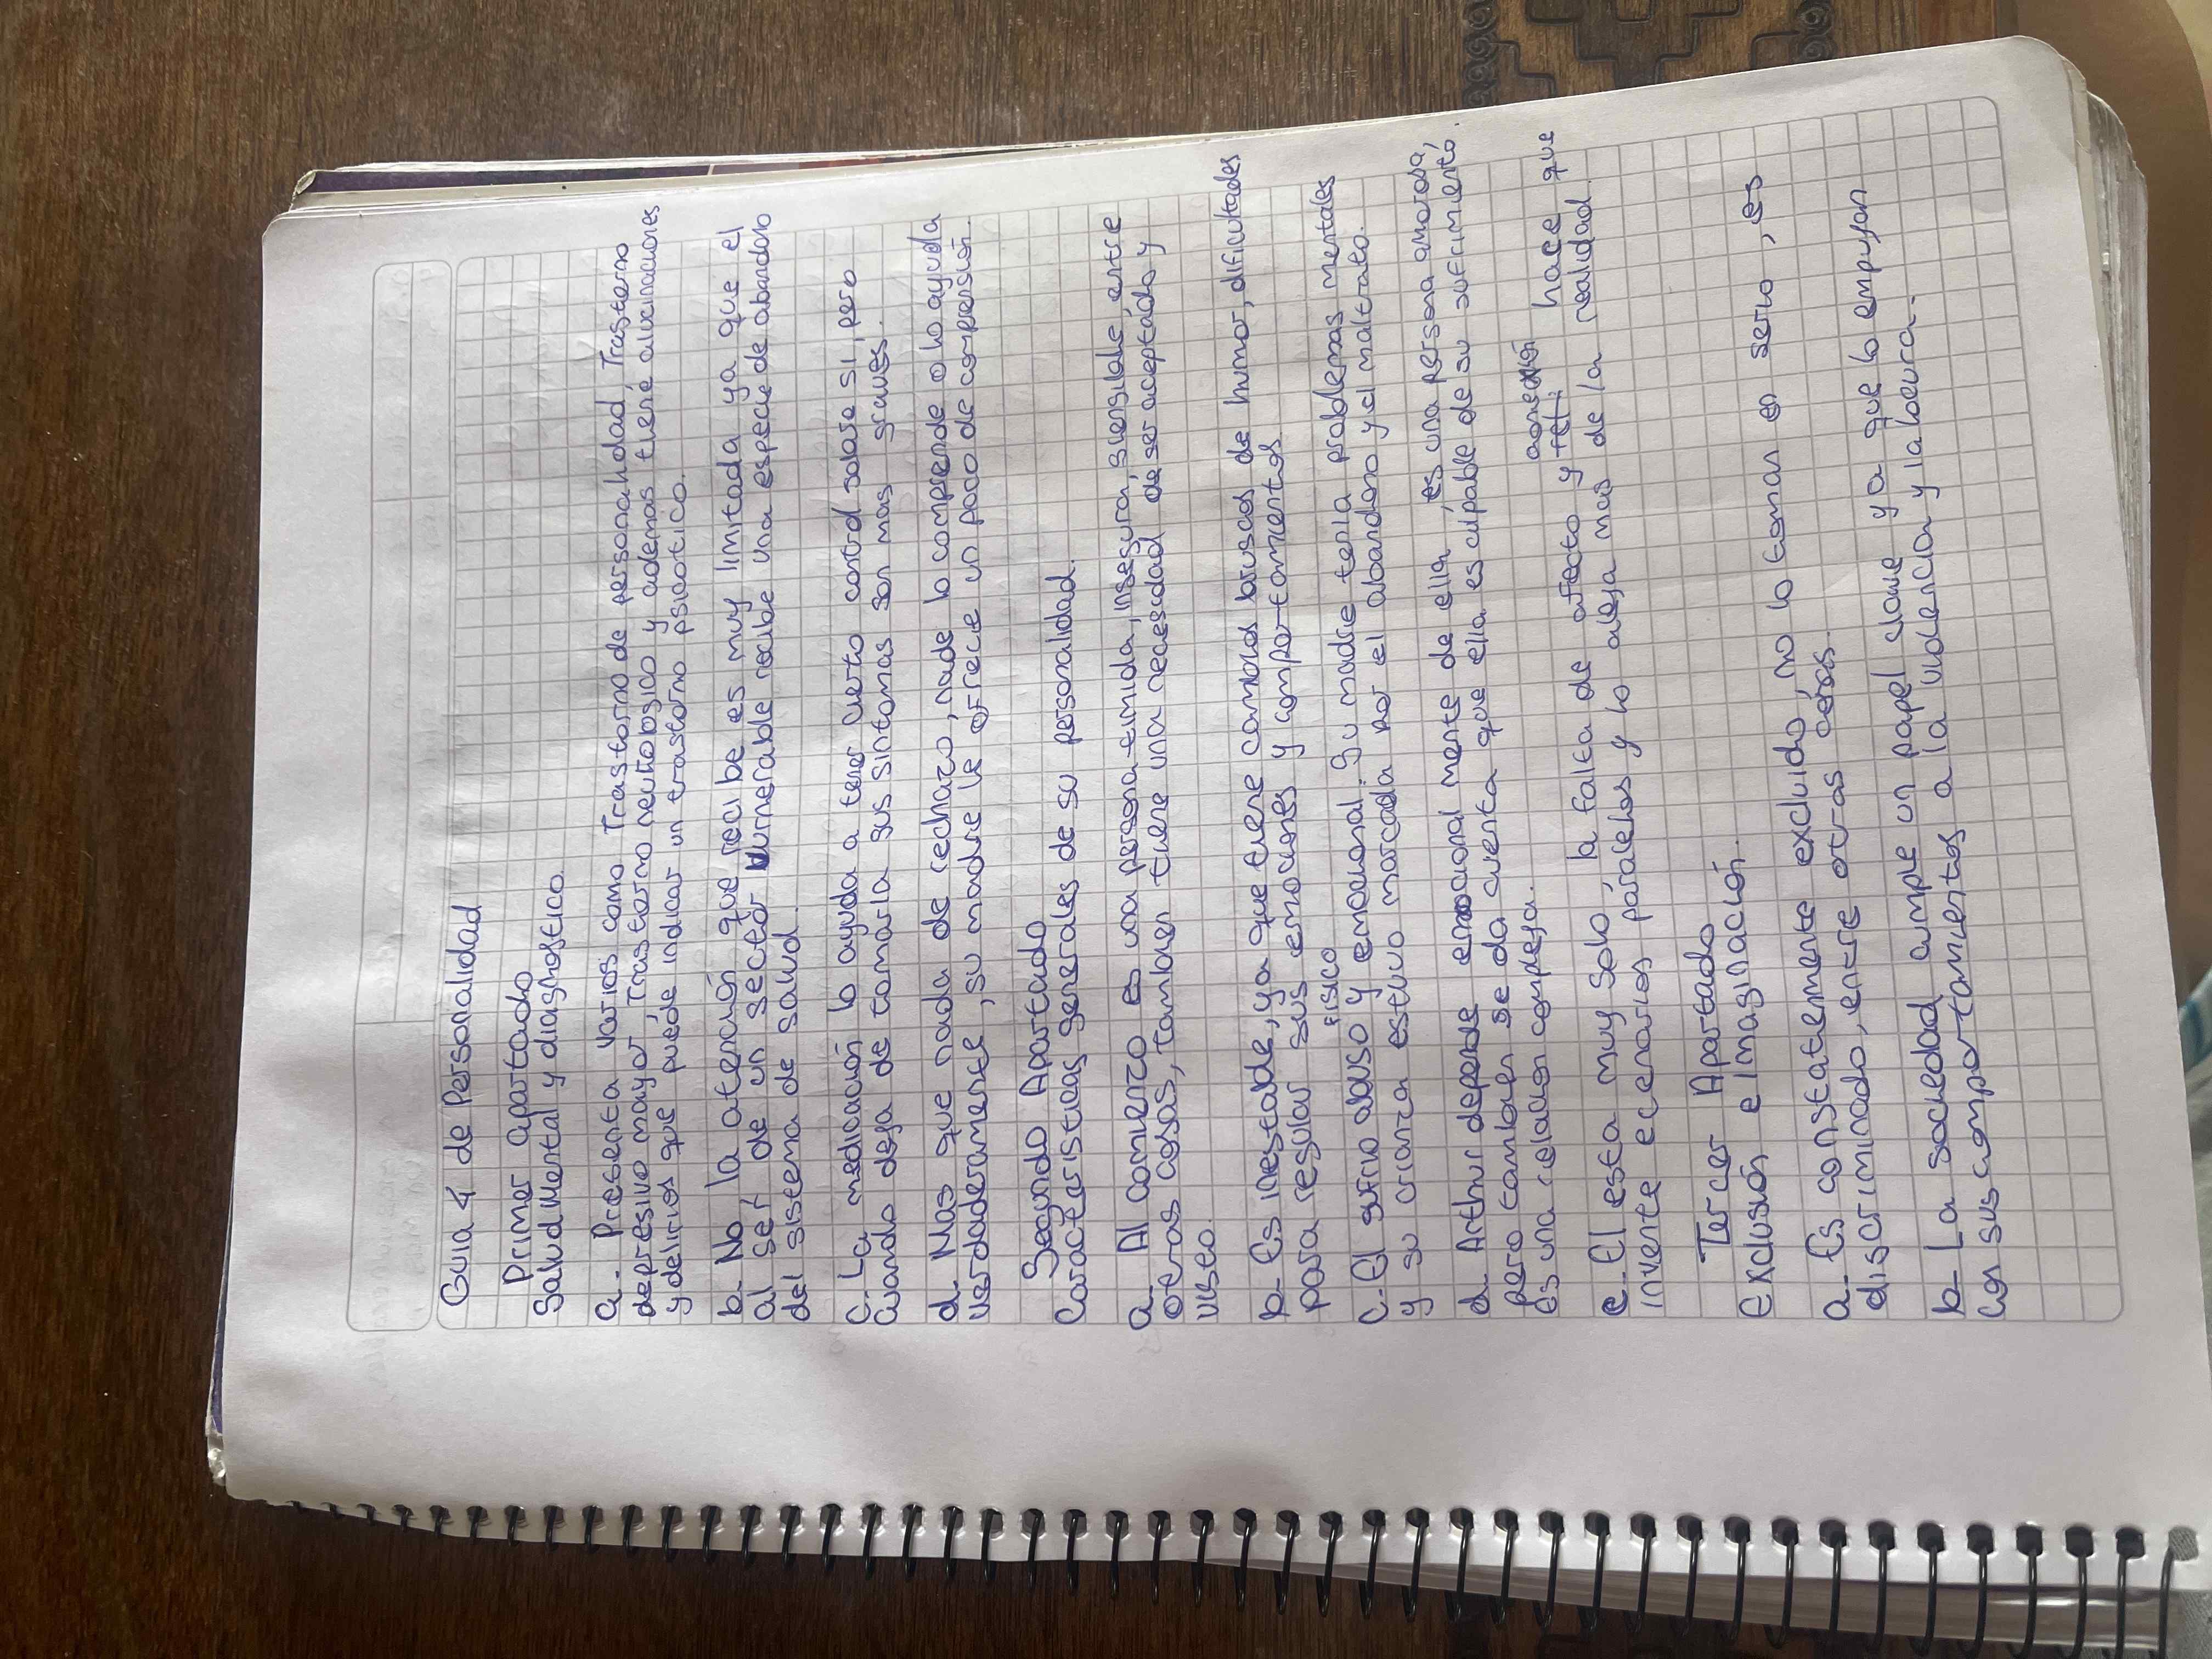 Guia 4 de Personalidad
Primer apartado
Salud Mental y diagnostico.
a- Presenta varios como Trastorno de personalidad, Trastorno
depresivo mayor, Trastorno neurologico y ademas tiene alucinaciones
y delirios que puede indicar un trastorno psicotico.
b- No, la atención que recibe es muy limitada ya que el
al ser de un sector vurnerable recibe una especie de abandono
del sistema de salud.
c- La medicación lo ayuda a tener cierto control sobre si, pero
cuando deja de tomarla sus sintomas son mas graves.
d- Mas que nada de rechazo, nade lo comprende o lo ayuda
verdaderamente, su madre le ofrece un poco de compresión.
Segundo Apartado
Caracteristicas generales de su personalidad.
a- Al comienzo es una persona timida, insegura, sensible, entre
otras cosas, tambien tiene una necesidad de ser aceptado y
visto.
b- Es inestable, ya que tiene cambios bruscos de humor, dificultades
para regular sus emociones y comportamientos
fisico
c- El sufrio abuso y emocional. Su madre tenia problemas mentales
y su crianza estuvo marcada por el abandono y el maltrato.
d- Arthur depende emocional mente de ella, es una persona amorosa,
pero tambien se da cuenta que ella es culpable de su sufrimiento
Es una relacion compleja.
conexión
e- El esta muy solo, la falta de afecto y hace que
invente ecenarios paralelos y lo aleja mas de la realidad.
Tercer Apartado
Exclusión e Imaginación.
a- Es constatemente excluido, no lo toman en serio, es
discriminado, entre otras cosas.
b- La sociedad cumple un papel clave ya que lo empujan
con sus comportamientos a la violencia y la locura.